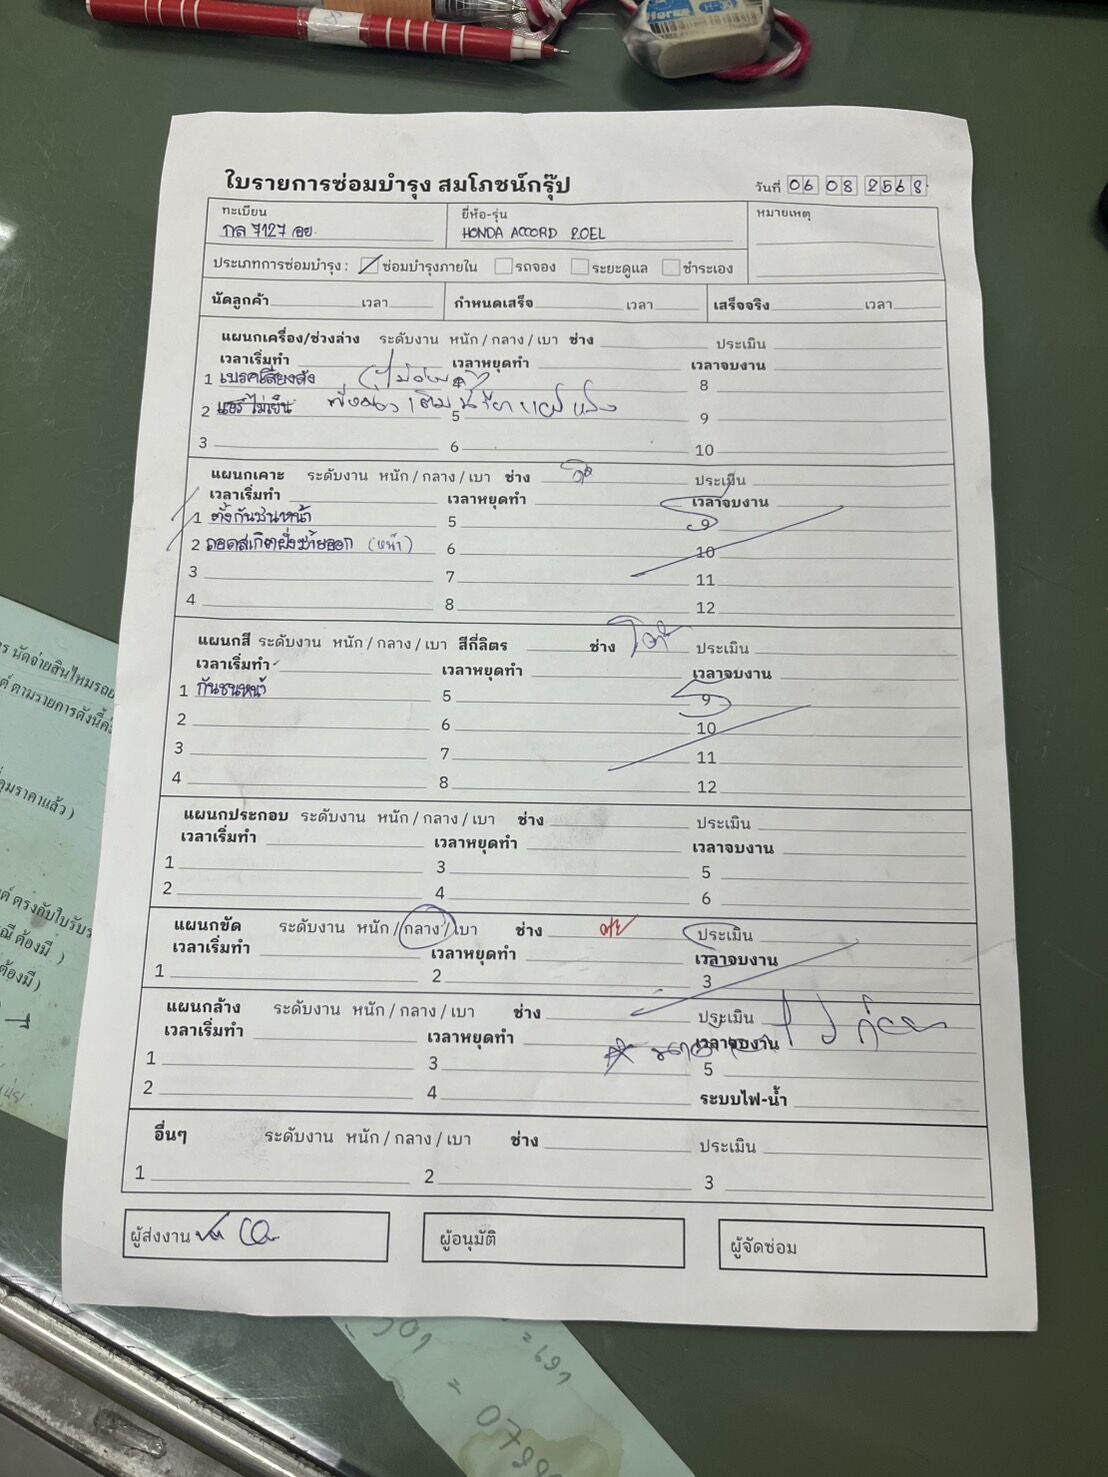 ใบรายการซ่อมบำรุง สมโภชน์กรุ๊ป
วันที่ 06 08 2568
ทะเบียน ยี่ห้อ-รุ่น หมายเหตุ
กล 7127 อย. HONDA ACCORD 2.0EL
ประเภทการซ่อมบำรุง : ซ่อมบำรุงภายใน รถจอง ระยะดูแล ชำระเอง
นัดลูกค้า เวลา กำหนดเสร็จ เวลา เสร็จจริง เวลา
แผนกเครื่อง/ช่วงล่าง ระดับงาน หนัก / กลาง / เบา ช่าง ประเมิน
เวลาเริ่มทำ เวลาหยุดทำ เวลาจบงาน
1 เบรคเสียงดัง 4 8
2 แอร์ไม่เย็น 5 9
3 6 10
แผนกเคาะ ระดับงาน หนัก / กลาง / เบา ช่าง ประเมิน
เวลาเริ่มทำ เวลาหยุดทำ เวลาจบงาน
1 ตั้งกันชนหน้า 5 9
2 ถอดสเกิตฝั่งซ้ายออก (หน้า) 6 10
3 7 11
4 8 12
แผนกสี ระดับงาน หนัก / กลาง / เบา สีกี่ลิตร ช่าง ประเมิน
เวลาเริ่มทำ เวลาหยุดทำ เวลาจบงาน
1 กันชนหน้า 5 9
2 6 10
3 7 11
4 8 12
แผนกประกอบ ระดับงาน หนัก / กลาง / เบา ช่าง ประเมิน
เวลาเริ่มทำ เวลาหยุดทำ เวลาจบงาน
1 3 5
2 4 6
แผนกขัด ระดับงาน หนัก / กลาง / เบา ช่าง ประเมิน
เวลาเริ่มทำ เวลาหยุดทำ เวลาจบงาน
1 2 3
แผนกล้าง ระดับงาน หนัก / กลาง / เบา ช่าง ประเมิน
เวลาเริ่มทำ เวลาหยุดทำ เวลาจบงาน
1 3 5
2 4 ระบบไฟ-น้ำ
อื่นๆ ระดับงาน หนัก / กลาง / เบา ช่าง ประเมิน
1 2 3
ผู้ส่งงาน ผู้อนุมัติ ผู้จัดซ่อม